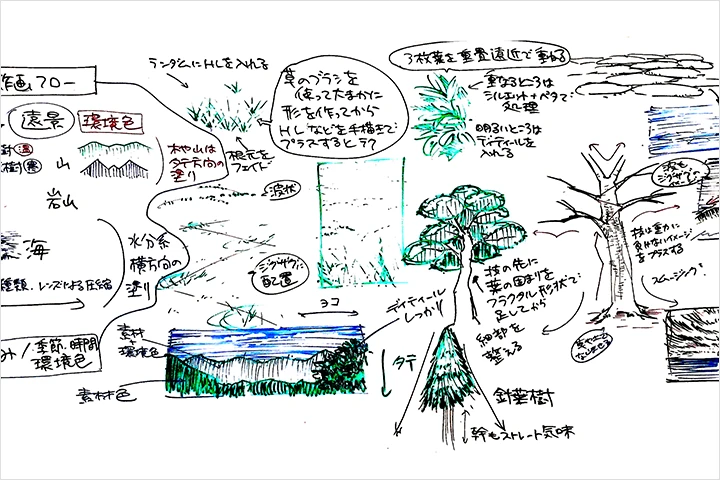 作画フロー
遠景
環境色
山
岩山
海
種類、レンズによる圧縮
季節、時間
環境色
木や山は
タテ方向の
塗り
水分系
横方向の
塗り
ランダムにHLを入れる
根元を
フェイド
草のブラシを
使って大まかに
形を作ってから
HLなどを手描きで
プラスするとラク
波状
ジグザグに
配置
ヨコ
タテ
ディティール
しっかり
素材
+
環境色
素材色
3枚葉を重畳遠近で重ねる
重なるところは
シルエット+ベタで
処理
明るいところは
ディティールを
入れる
枝の先に
葉の固まりを
フラクタル形状で
足してから
細部を
整える
針葉樹
幹もストレート気味
波も
スムージング